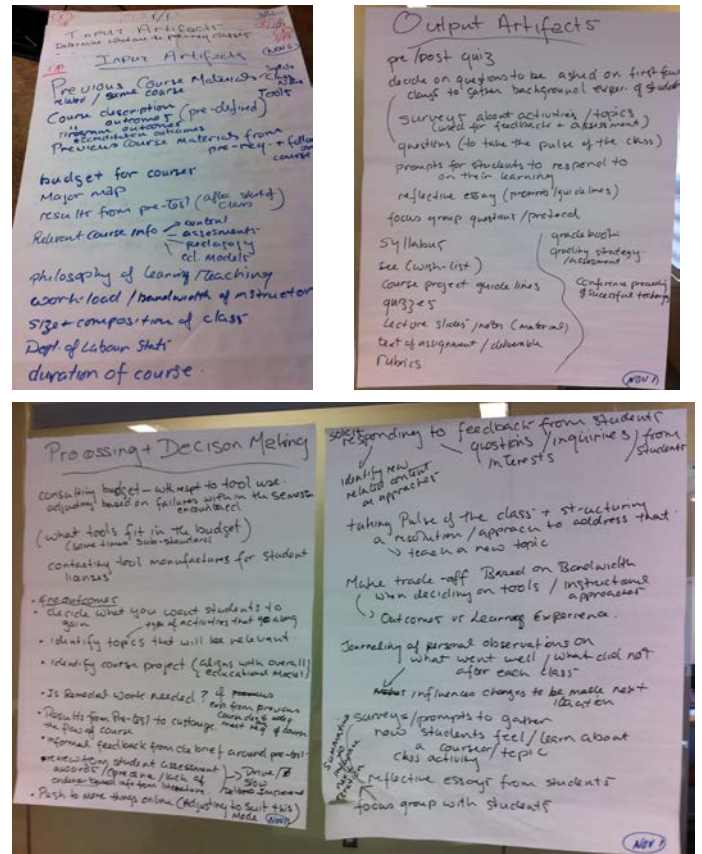 Input Artifacts
Determine what are the pre-req classes
Input Artifacts
(NOV 1)
Previous Course Materials
related / same course
Tools
Course description
outcomes (pre-defined)
Program outcomes
Accreditation outcomes
Previous Course Materials from
pre-req + follow on course
budget for courses
Major map
results from pre-test (after start of class)
Relevant Course info
content
assessments
pedagogy
ed. models
philosophy of learning / teaching
work-load / bandwidth of instructor
size + composition of class
Dept. of Labour Stats
duration of course.
Output Artifacts
pre/post quiz
decide on questions to be asked on first few
days to gather background exper. of students
surveys about activities / topics
(used for feedback + assessment)
questions (to take the pulse of the class)
prompts for students to respond to
on their learning
reflective essay (prompts/guidelines)
focus group questions / protocol
syllabus
see (wish-list)
Course project guidelines
quizzes
lecture slides / notes (material)
text of assignment / deliverable
rubrics
gradebook
grading strategy
/assessment
Conference proceeding
of successful technique
(NOV 1)
Processing + Decison Making
consulting budget - with respt to tool use.
adjusting based on failures within the semester
encountered
(what tools fit in the budget)
(sometimes sub-standard)
contacting tool manufactures for student
licenses
outcomes
• decide what you want students to
gain
type of activities that go along
• identify topics that will be relevant
• identify course project (aligns with overall
educational model)
• Is Remedial Work needed?
from previous
• Results from Pre-test to customize
the flow of course
• informal feedback from debrief around pre-test
• reviewing student assessment
literature
• Push to more things online (Adjusting to suit this)
Mode
(NOV 1)
solicit
responding to feedback from students
questions / inquiries / from students
interests
identify new
related content
or approaches
taking Pulse of the class + structuring
a resolution / approach to address that
teach a new topic
Make trade-off Based on Bandwidth
when deciding on tools / instructional
approaches
Outcomes vs Learning Experience.
Journaling of personal observations on
what went well / what did not
after each class
influences changes to be made next
iteration
surveys/prompts to gather
how students feel / learn about
a course / topic
class activity
reflective essays from students
focus group with students
(NOV 1)